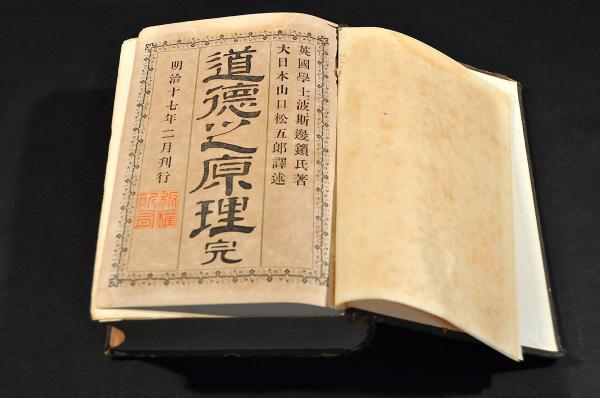 英國學士波斯邊鎖氏著
大日本山口松五郎譯述
道德之原理完
明治十七年二月刊行
板權所有